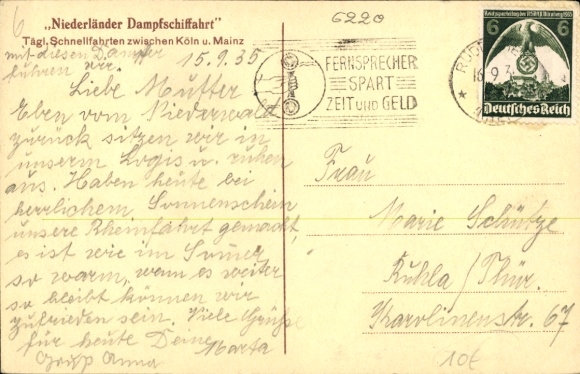 6
6220
„Niederländer Dampfschiffahrt"
Tägl. Schnellfahrten zwischen Köln u. Mainz
mit diesen Dampfer
fuhren wir.
15.9.35
Liebe Mutter
Eben vom Niederwald
zurück sitzen wir in
unserm Logis u. ruhen
aus. Haben heute bei
herrlichem Sonnenschein
unsere Rheinfahrt gemacht,
es ist wie im Sommer
so warm, wenn es weiter
so bleibt können wir
zufrieden sein. Viele Grüße
für heute Deine
Marta
Gruß Anna
FERNSPRECHER
SPART
ZEIT UND GELD
16.9.3
Reichsparteitag der NSDAP Nürnberg 1935
6 6
Deutsches Reich
Frau
Marie Schütze
Ruhla/Thür.
Karolinenstr. 67
10€